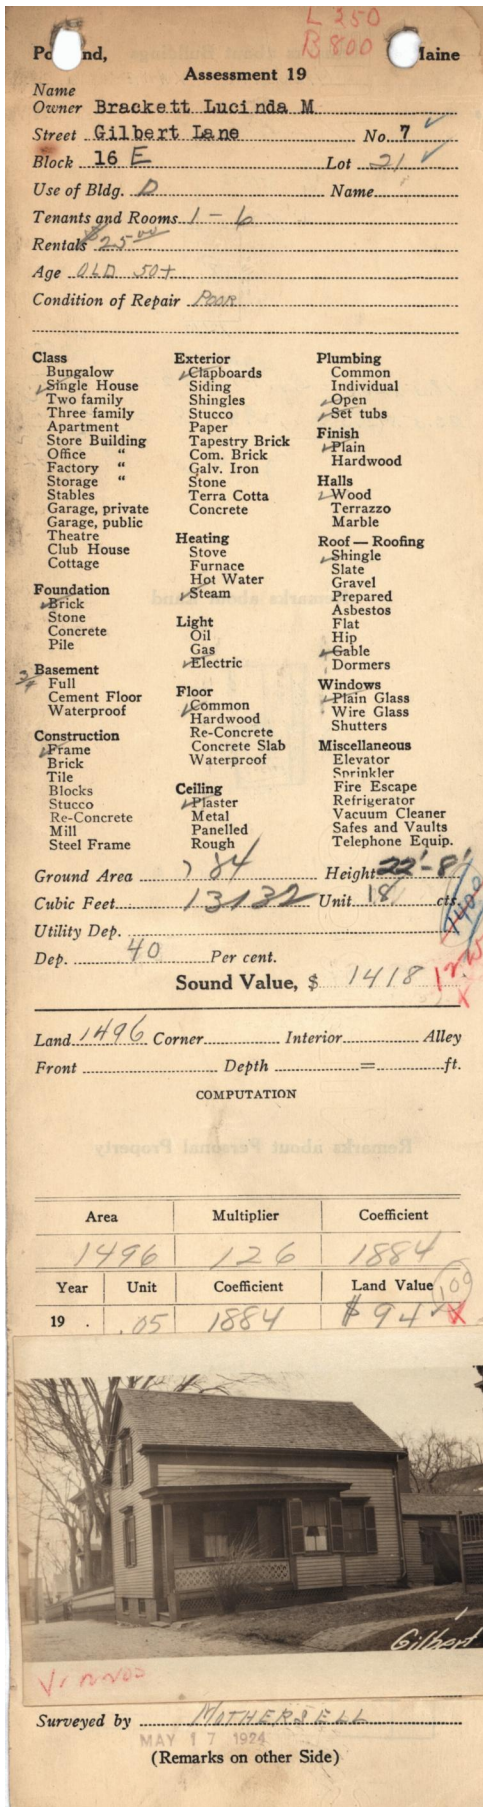 L 250
B 800
Po nd, Maine
Assessment 19
Name
Owner Brackett Lucinda M
Street Gilbert Lane No. 7 ✓
Block 16 E Lot 21 ✓
Use of Bldg. D Name
Tenants and Rooms 1 - 6
Rentals $25.00
Age OLD 50+
Condition of Repair Poor
Class
Bungalow
✓ Single House
Two family
Three family
Apartment
Store Building
Office "
Factory "
Storage "
Stables
Garage, private
Garage, public
Theatre
Club House
Cottage
Foundation
✓ Brick
Stone
Concrete
Pile
Basement
3/4 Full
Cement Floor
Waterproof
Construction
✓ Frame
Brick
Tile
Blocks
Stucco
Re-Concrete
Mill
Steel Frame
Exterior
✓ Clapboards
Siding
Shingles
Stucco
Paper
Tapestry Brick
Com. Brick
Galv. Iron
Stone
Terra Cotta
Concrete
Heating
Stove
Furnace
Hot Water
✓ Steam
Light
Oil
Gas
✓ Electric
Floor
✓ Common
Hardwood
Re-Concrete
Concrete Slab
Waterproof
Ceiling
✓ Plaster
Metal
Panelled
Rough
Plumbing
Common
Individual
✓ Open
✓ Set tubs
Finish
✓ Plain
Hardwood
Halls
✓ Wood
Terrazzo
Marble
Roof — Roofing
✓ Shingle
Slate
Gravel
Prepared
Asbestos
Flat
Hip
✓ Gable
Dormers
Windows
✓ Plain Glass
Wire Glass
Shutters
Miscellaneous
Elevator
Sprinkler
Fire Escape
Refrigerator
Vacuum Cleaner
Safes and Vaults
Telephone Equip.
Ground Area 784 Height 22'-8'
Cubic Feet 13132 Unit 18 cts.
Utility Dep.
Dep. 40 Per cent.
Sound Value, $ 1418
Land 1496 Corner Interior Alley
Front Depth = ft.
COMPUTATION
Area Multiplier Coefficient
1496 126 1884
Year Unit Coefficient Land Value 100
19 . .05 1884 $ 94 X
Gilbert
Surveyed by MOTHERSELL
MAY 17 1924
(Remarks on other Side)